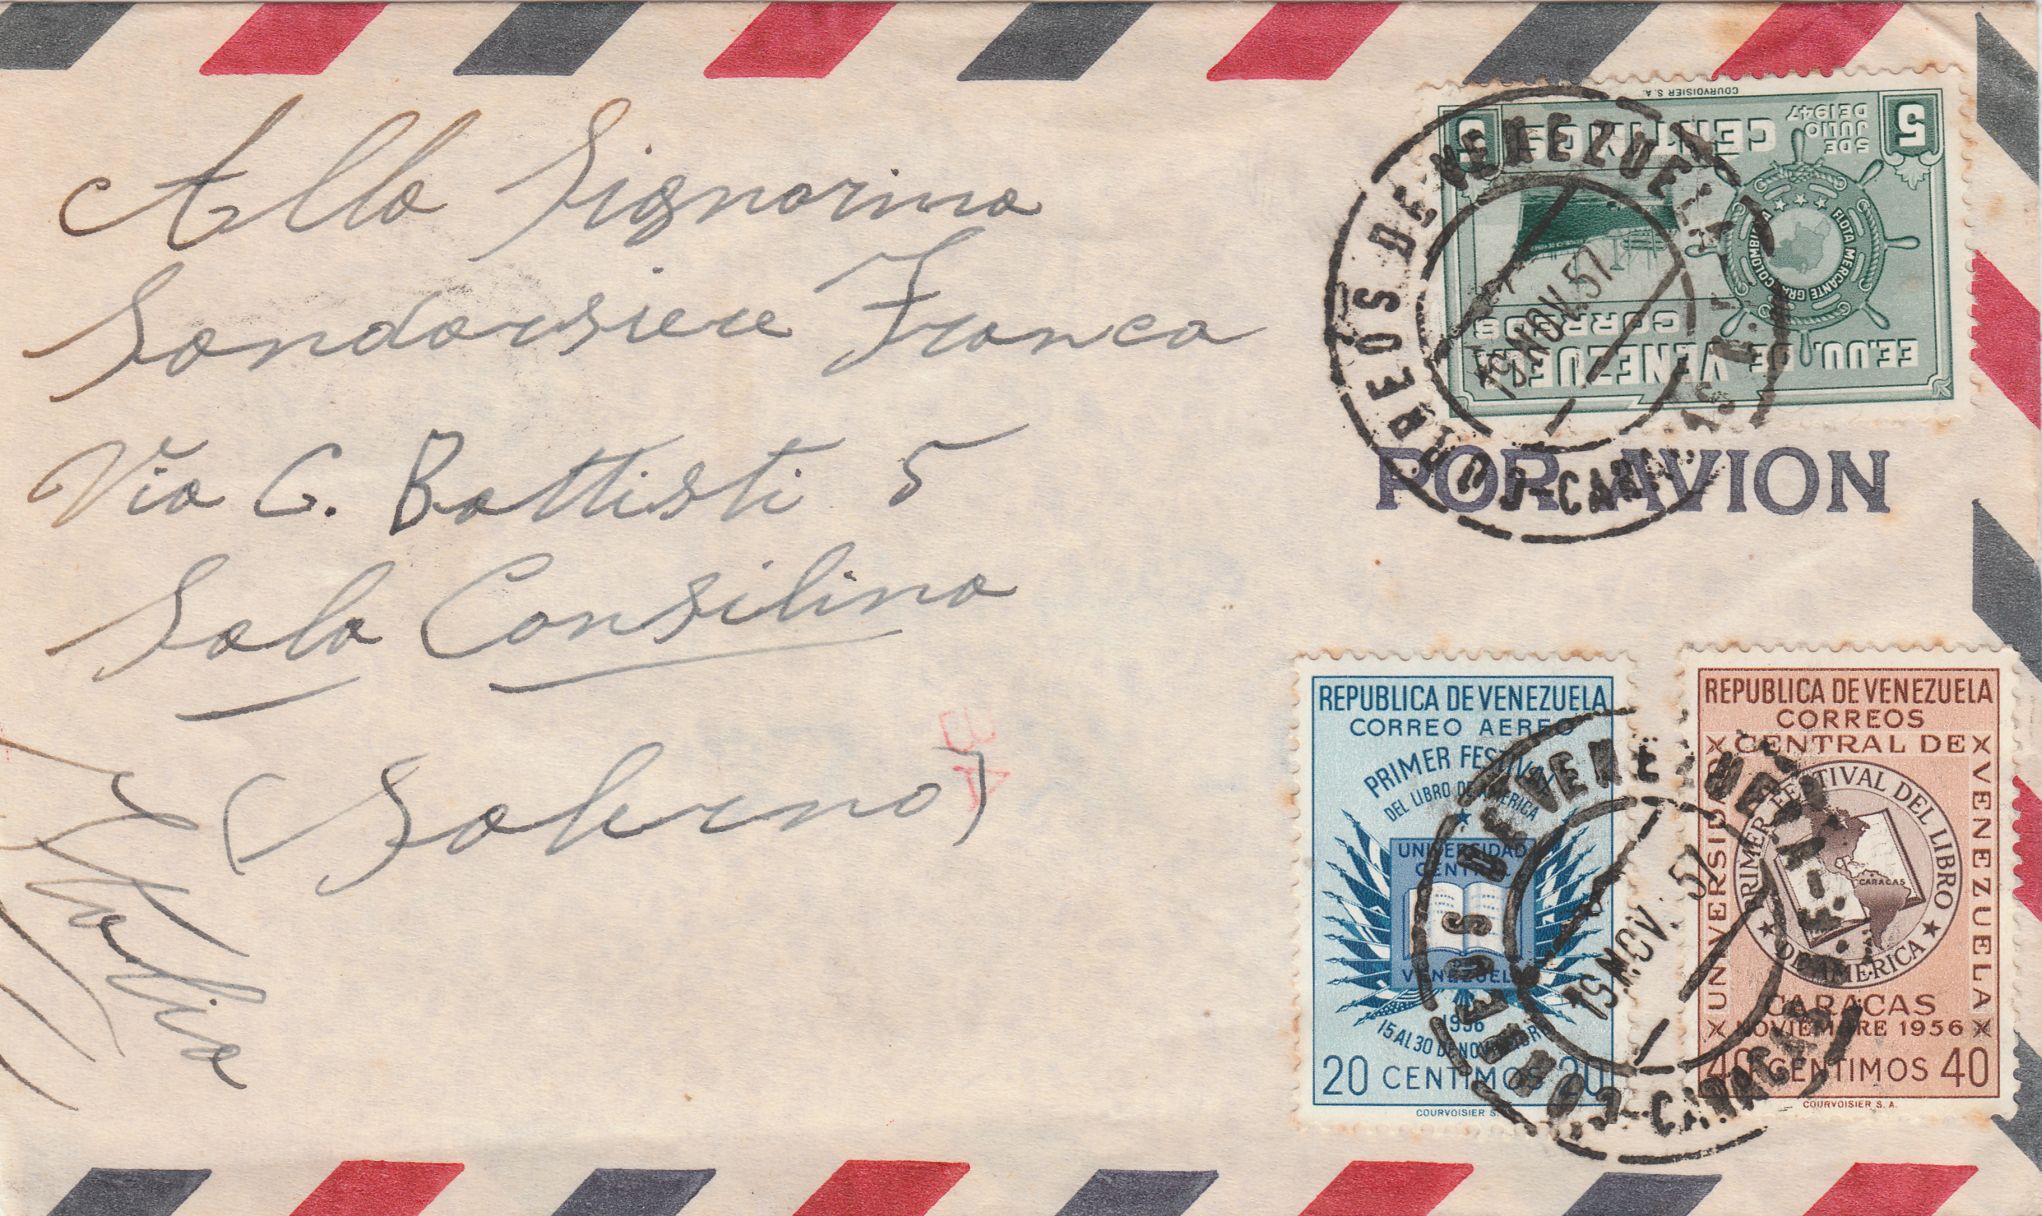 Alla Signorina
Sandarsiere Franca
Via C. Battisti 5
Sala Consilina
(Salerno)
Italia
POR AVION
EE.UU. DE
VENEZUELA
CORREOS
FLOTA MERCANTE GRANCOLOMBIANA
5 DE
JULIO
DE 1947
5 CENTIMOS 5
COURVOISIER S.A.
CORREOS DE VENEZUELA
19 NOV. 57
CARACAS D.F.
REPUBLICA DE VENEZUELA
CORREO AEREO
PRIMER FESTIVAL
DEL LIBRO DE AMERICA
UNIVERSIDAD
CENTRAL
VENEZUELA
1956
15 AL 30 DE NOVIEMBRE
20 CENTIMOS 20
COURVOISIER S.A.
REPUBLICA DE VENEZUELA
CORREOS
CENTRAL DE
UNIVERSIDAD
VENEZUELA
PRIMER FESTIVAL DEL LIBRO
DE AMERICA
CARACAS
CARACAS
NOVIEMBRE 1956
40 CENTIMOS 40
COURVOISIER S.A.
CORREOS DE VENEZUELA
19 NOV. 57
CARACAS